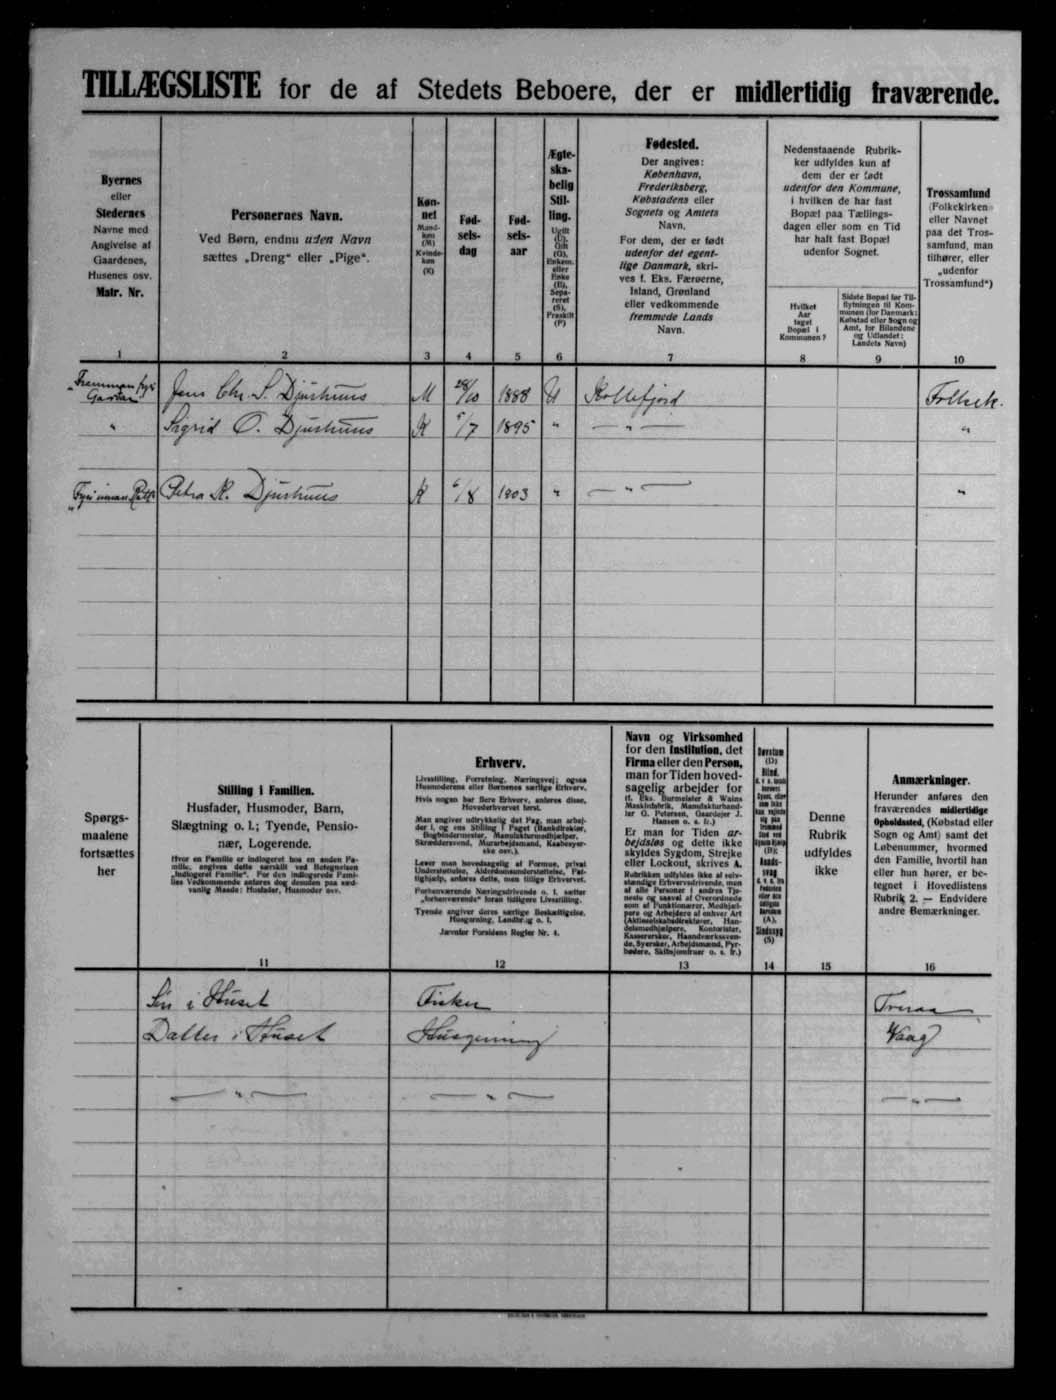 TILLÆGSLISTE for de af Stedets Beboere, der er midlertidig fraværende.
Byernes
eller
Stedernes
Navne med
Angivelse af
Gaardenes,
Husenes osv.
Matr. Nr.
1
Personernes Navn.
Ved Børn, endnu uden Navn
sættes „Dreng“ eller „Pige“.
2
Køn-
net
Mand-
køn
(M)
Kvinde-
køn
(K)
3
Fød-
sels-
dag
4
Fød-
sels-
aar
5
Ægte-
ska-
belig
Stil-
ling.
Ugift
(U),
Gift
(G),
Enkem.
eller
Enke
(E),
Sepa-
reret
(S),
Fraskilt
(F)
6
Fødested.
Der angives:
København,
Frederiksberg,
Købstadens eller
Sognets og Amtets
Navn.
For dem, der er født
udenfor det egent-
lige Danmark, skri-
ves f. Eks. Færøerne,
Island, Grønland
eller vedkommende
fremmede Lands
Navn.
7
Nedenstaaende Rubrik-
ker udfyldes kun af
dem der er født
udenfor den Kommune,
i hvilken de har fast
Bopæl paa Tællings-
dagen eller som en Tid
har haft fast Bopæl
udenfor Sognet.
Hvilket
Aar
taget
Bopæl i
Kommunen?
8
Sidste Bopæl før Til-
flytningen til Kom-
munen (for Danmark:
Købstad eller Sogn og
Amt, for Bilandene
og Udlandet:
Landets Navn)
9
Trossamfund
(Folkekirken
eller Navnet
paa det Tros-
samfund, man
tilhører, eller
„udenfor
Trossamfund“)
10
Jens Chr. S. Djurhuus M 28/10 1888 U Kollefjord Folkek.
" Sigrid O. Djurhuus K 5/7 1895 " — " — "
Petra K. Djurhuus K 6/8 1903 " — " — "
Spørgs-
maalene
fortsættes
her
Stilling i Familien.
Husfader, Husmoder, Barn,
Slægtning o. l.; Tyende, Pensio-
nær, Logerende.
Hvor en Familie er indlogeret hos en anden Fa-
milie, angives dette særskilt ved Betegnelsen
„Indlogeret Familie“. For den indlogerede Fami-
lies Vedkommende anføres dog desuden paa sæd-
vanlig Maade: Husfader, Husmoder osv.
11
Erhverv.
Livsstilling, Forretning, Næringsvej; ogsaa
Husmoderens eller Børnenes særlige Erhverv.
Hvis nogen har flere Erhverv, anføres disse,
Hovederhvervet først.
Man angiver udtrykkelig det Fag, man arbej-
der i, og ens Stilling i Faget (Bankdirektør,
Bogbindermester, Manufakturmedhjælper,
Skræddersvend, Murarbejdsmand, Kaabesyer-
ske osv.).
Lever man hovedsagelig af Formue, privat
Understøttelse, Alderdomsunderstøttelse, Fat-
tighjælp, anføres dette, men tillige Erhvervet.
Forhenværende Næringsdrivende o. l. sætter
„forhenværende“ foran tidligere Livsstilling.
Tyende angiver deres særlige Beskæftigelse,
Husgerning, Landbrug o. l.
Jævnfør Forsidens Regler Nr. 4.
12
Navn og Virksomhed
for den Institution, det
Firma eller den Person,
man for Tiden hoved-
sagelig arbejder for
(f. Eks. Burmeister & Wains
Maskinfabrik, Manufakturhand-
ler G. Petersen, Gaardejer J.
Hansen o. s. fr.)
Er man for Tiden ar-
bejdsløs og dette ikke
skyldes Sygdom, Strejke
eller Lockout, skrives A.
Rubrikken udfyldes ikke af selv-
stændige Erhvervsdrivende, men
af alle Personer i andres Tje-
neste og saavel af Overordnede
som af Funktionærer, Medhjæl-
pere og Arbejdere af enhver Art
(Aktieselskabsdirektører, Han-
delsmedhjælpere, Kontorister,
Kassererrsker, Haandværkssven-
de, Syersker, Arbejdsmænd, Fyr-
bødere, Skibsjomfruer o. s. fr.)
13
Døvstum
(D)
Blind,
(B);
Aands-
svag
(A),
Sindssyg
(S)
14
Denne
Rubrik
udfyldes
ikke
15
Anmærkninger.
Herunder anføres den
fraværendes midlertidige
Opholdssted, (Købstad eller
Sogn og Amt) samt det
Løbenummer, hvormed
den Familie, hvortil han
eller hun hører, er be-
tegnet i Hovedlistens
Rubrik 2. — Endvidere
andre Bemærkninger.
16
Søn i Huset Fisker
Datter i Huset Husgerning Vaag
— " — — " — — " —